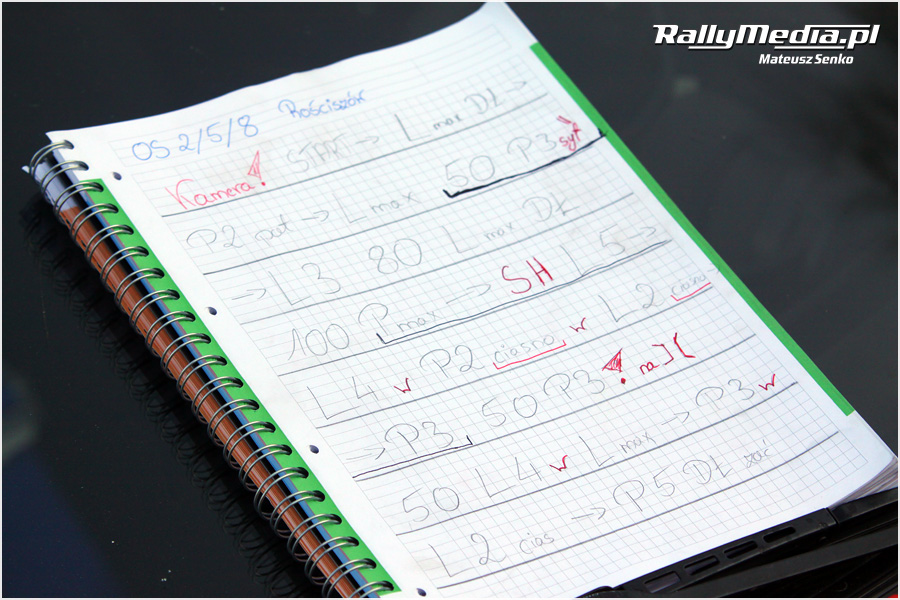 RallyMedia.pl
Mateusz Senko
OS 2/5/8 Rościszów
Kamera! START → L max DŁ →
50 P3 syf
P2 pat → L max
→ L3 80 L max DŁ
100 P max → SH L 5 →
L4 w P2 ciasno w L2 ciasno →
→ P3 50 P3 ! na ] [
50 L4 w L max → P3 w
L2 cias → P5 DŁ